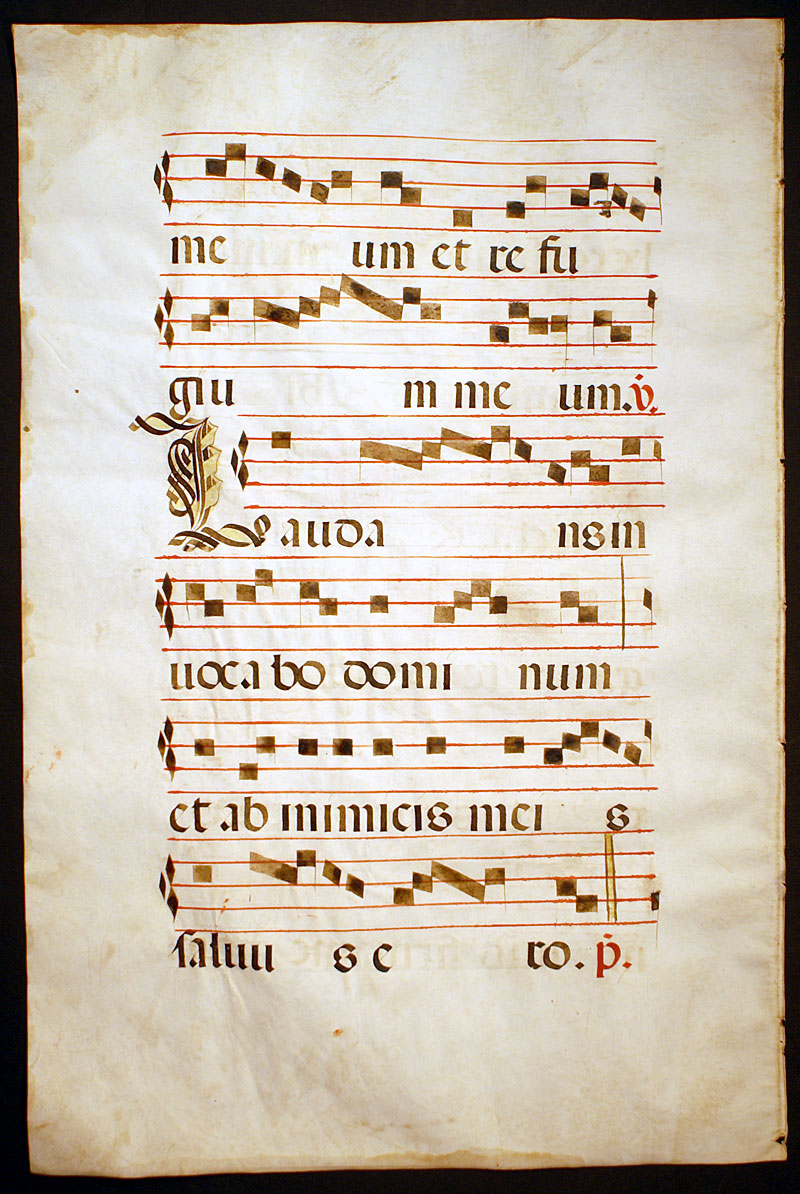 me um et re fu
giu m me um. v̄.
Lauda nsin
uoca bo domi num
et ab inimicis mei s
saluu s e ro. p̄.